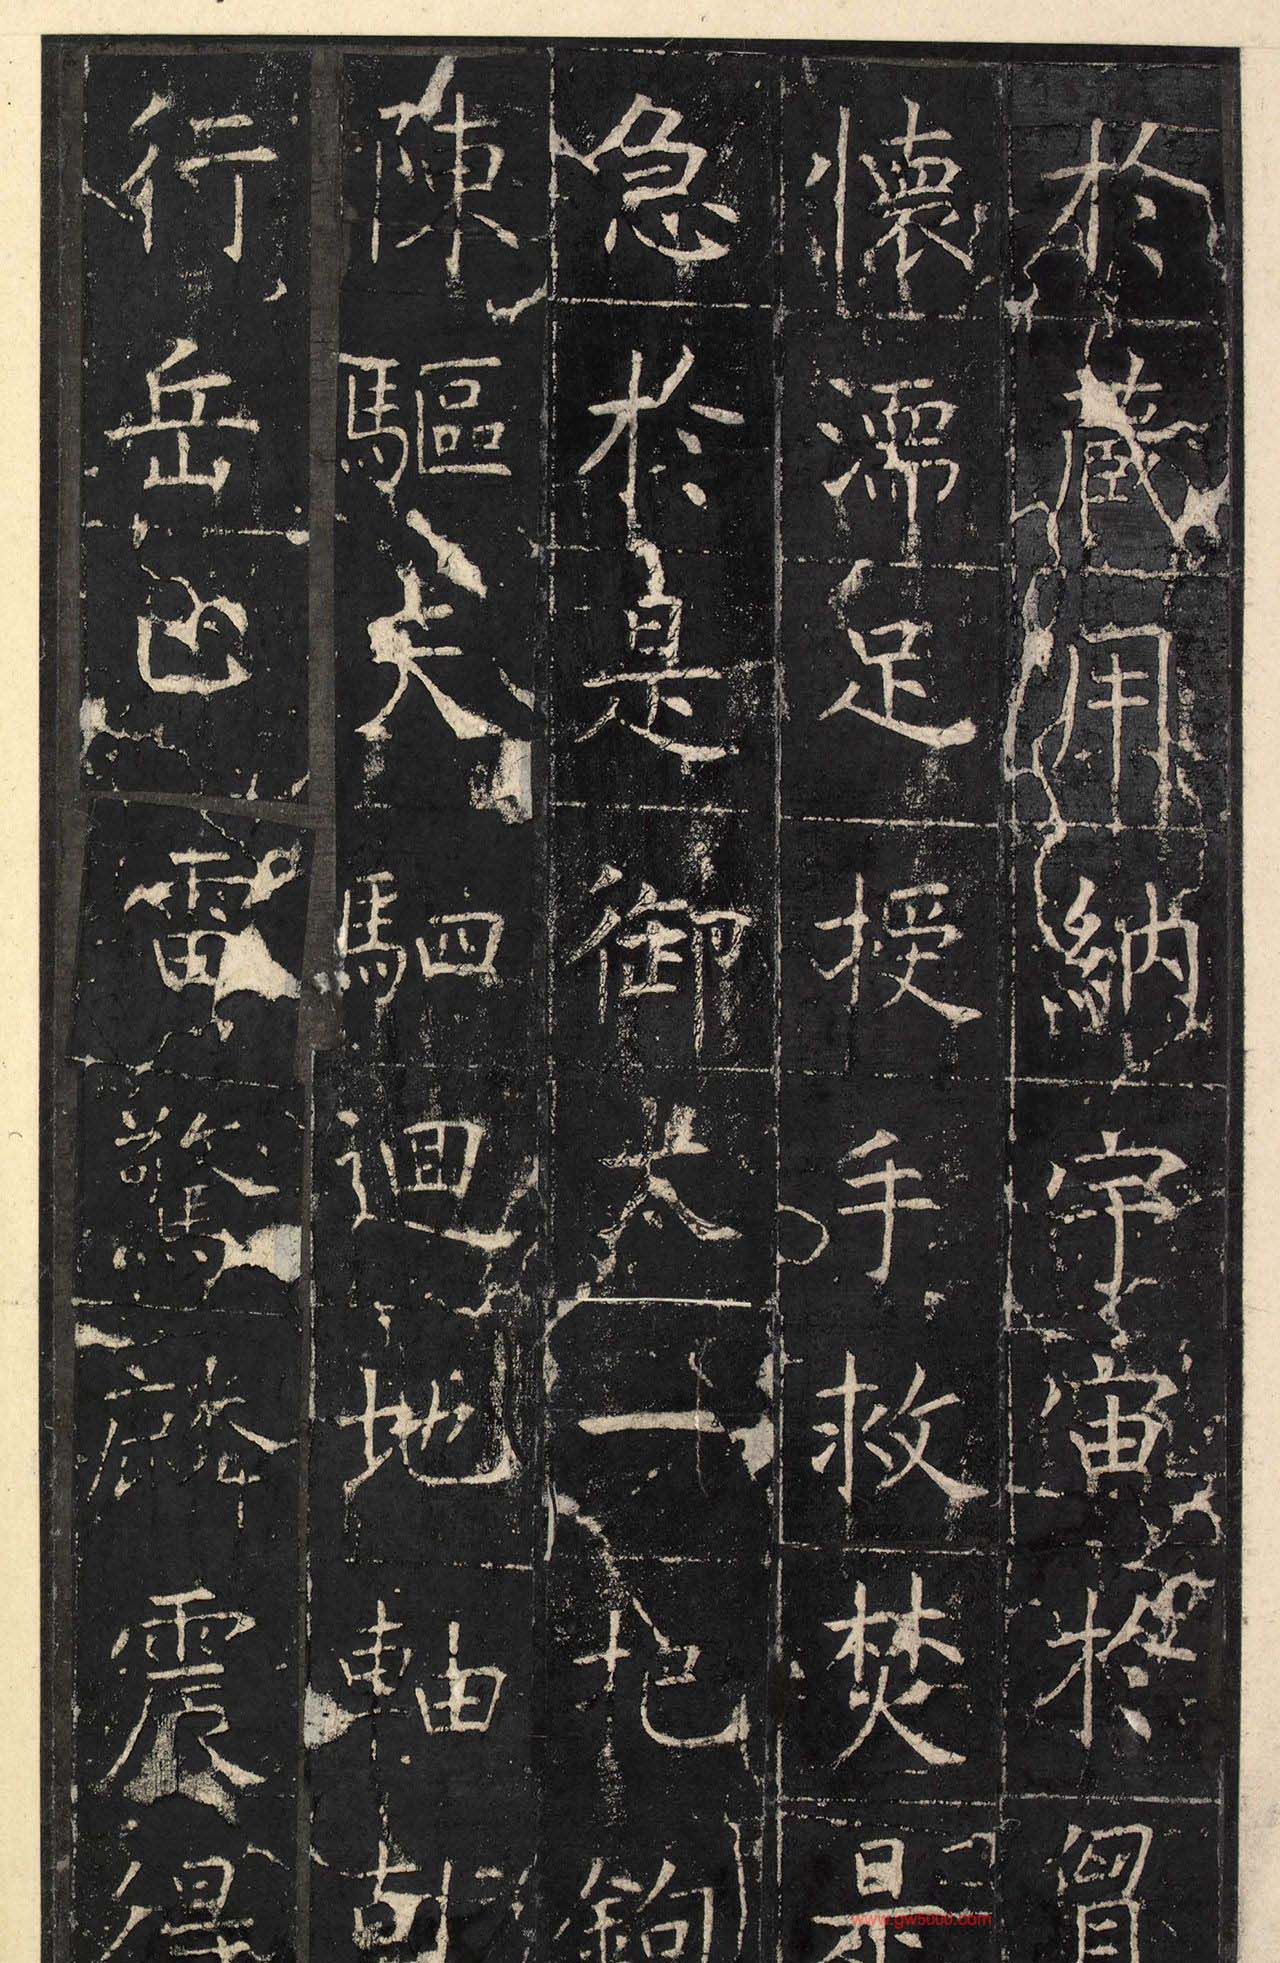 於藏用納宇宙於胷
懷濡足授手救焚是
急於是御太一把鉤
陳驅天駟迴地軸
行岳也雷驚麟震
www.gw5000.com